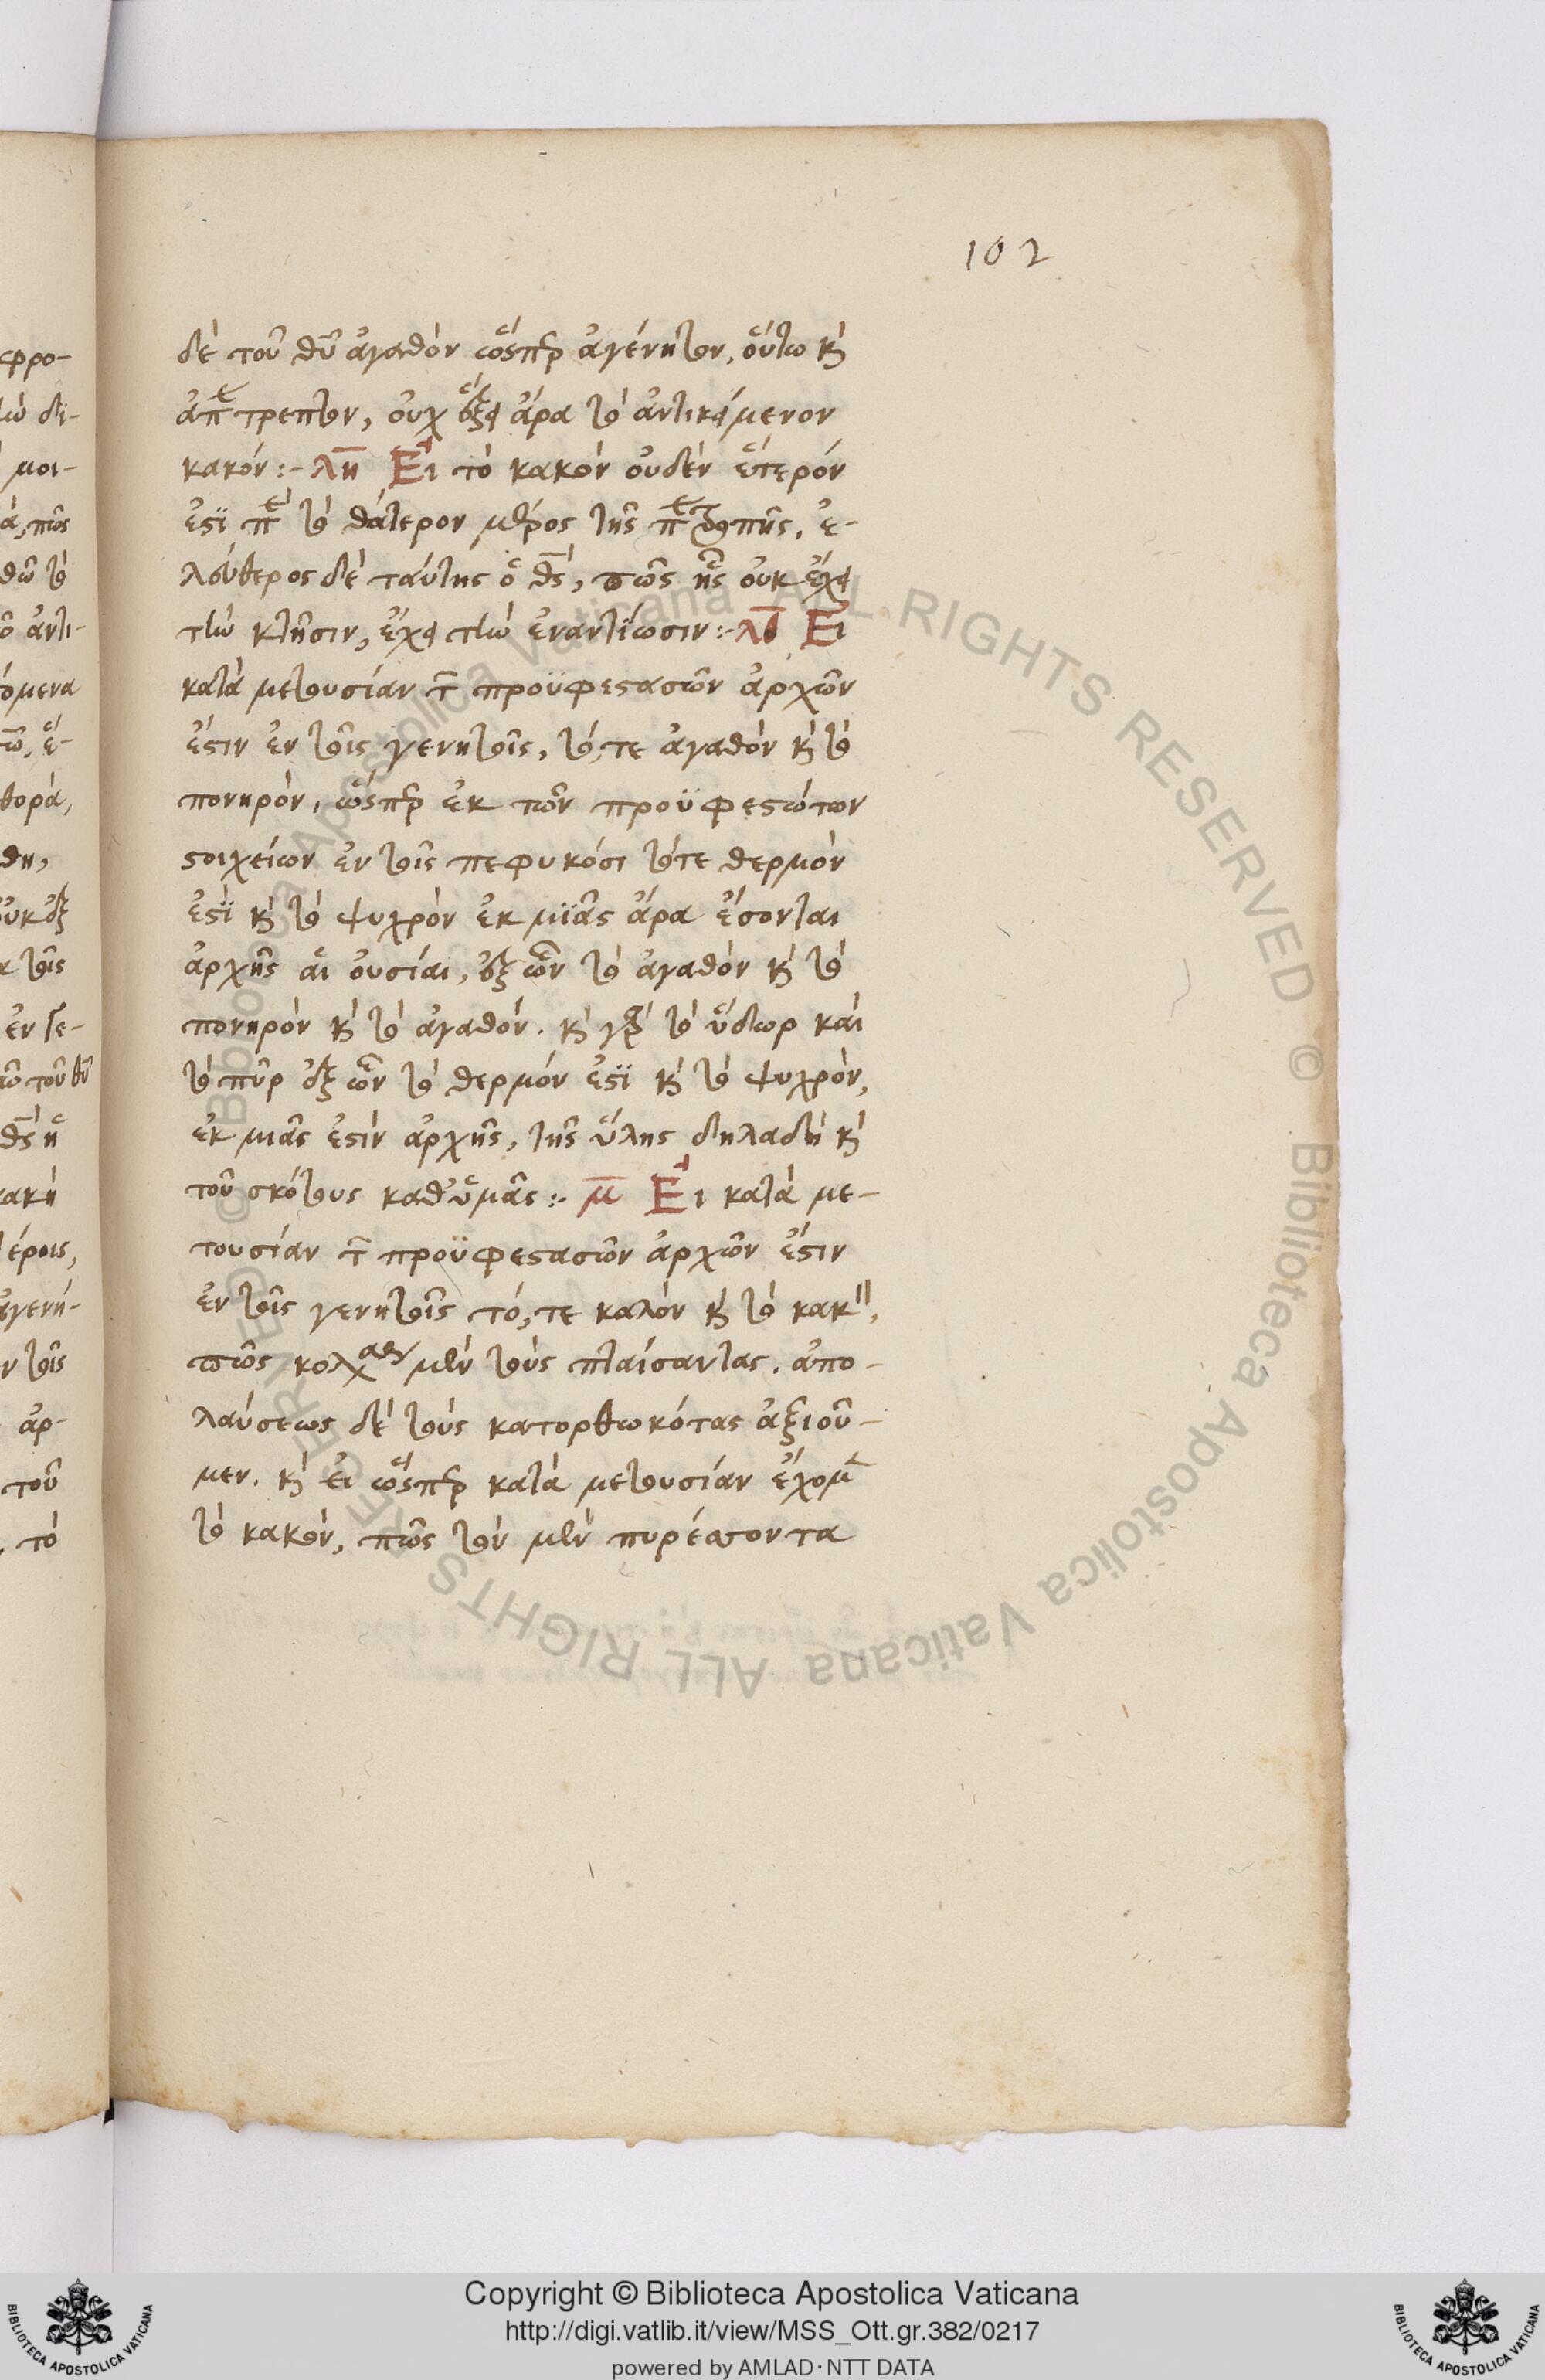 102
δὲ τοῦ θυ ἀγαθὸν ὥσπερ ἀγένητον, οὕτω κὶ
ἀπερίτρεπτον, οὐχ ἕξει ἄρα τὸ ἀντικείμενον
κακόν:- λη Εἰ τὸ κακὸν οὐδὲν ἕτερόν
ἐστι παρὰ τὸ θάτερον μέρος τῆς περιτροπῆς, ἐ-
λεύθερος δὲ ταύτης ὁ θς, πῶς ἧς οὐκ ἔχει
τὴν κτῆσιν, ἔχει τὴν ἐναντίωσιν:- λθ Εἰ
κατὰ μετουσίαν τῶν προϋφεστασῶν ἀρχῶν
ἐστιν ἐν τοῖς γενητοῖς, τό, τε ἀγαθὸν κὶ τὸ
πονηρὸν, ὥσπερ ἐκ τῶν προϋφεστώτων
στοιχείων ἐν τοῖς πεφυκόσι τότε θερμὸν
ἐστὶ κὶ τὸ ψυχρὸν ἐκ μϊᾶς ἄρα ἔσονται
ἀρχῆς αἱ οὐσίαι, ἐξ ὧν τὸ ἀγαθὸν κὶ τὸ
πονηρὸν κὶ τὸ ἀγαθόν. κὶ γὰρ τὸ ὕδωρ καὶ
τὸ πῦρ ἐξ ὧν τὸ θερμόν ἐστὶ κὶ τὸ ψυχρὸν,
ἐκ μιᾶς ἐστὶν ἀρχῆς, τῆς ὕλης δηλαδὴ κὶ
τοῦ σκότους καθ' ὑμᾶς:. μ Εἰ κατὰ με-
τουσίαν τῶν προϋφεστασῶν ἀρχῶν ἔστιν
ἐν τοῖς γενητοῖς τό, τε καλὸν κὶ τὸ κακὸν,
πῶς κολάζομεν μὲν τοὺς πταίσαντας. ἀπο-
λαύσεως δὲ τοὺς κατορθωκότας ἀξιοῦ-
μεν. κὶ εἰ ὥσπερ κατὰ μετουσίαν ἔχομεν
τὸ κακὸν, πῶς τὸν μὲν πυρέσσοντα
Copyright © Biblioteca Apostolica Vaticana
http://digi.vatlib.it/view/MSS_Ott.gr.382/0217
powered by AMLAD·NTT DATA